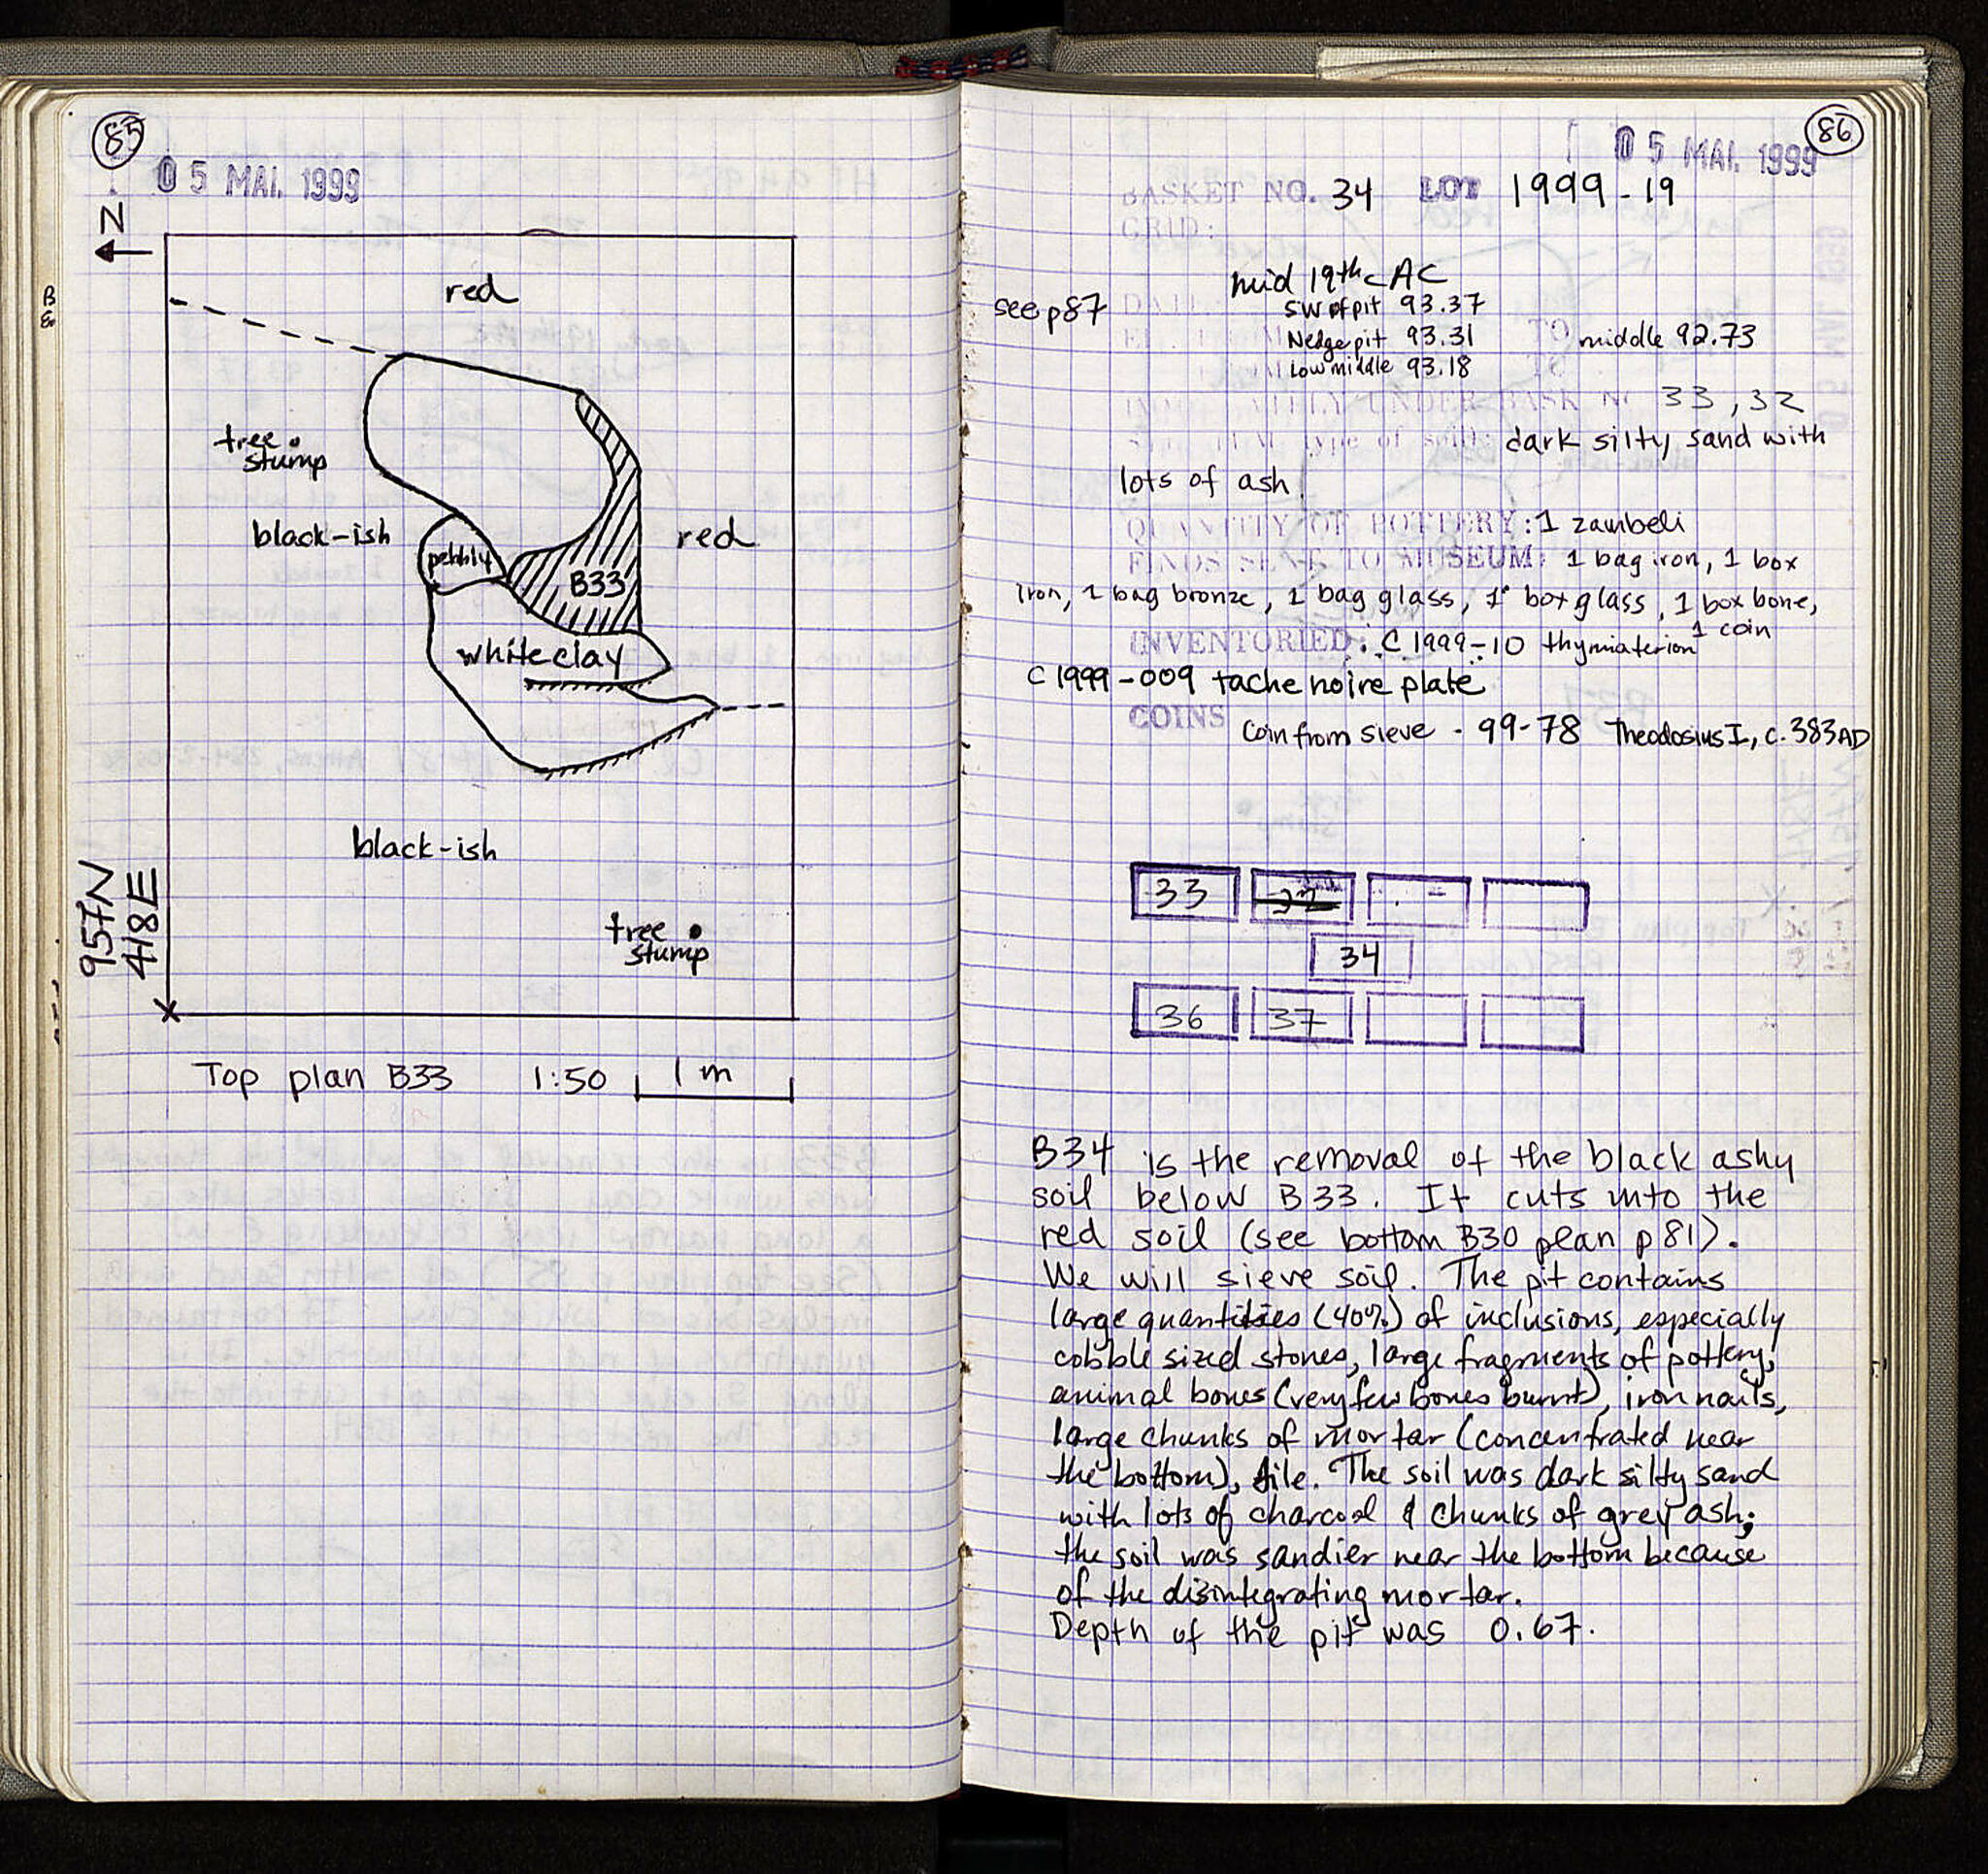 85
05 MAI. 1999
N
red
tree
stump
black-ish
pebbly
B33
red
white clay
black-ish
tree
stump
957N
418E
Top plan B33 1:50 1 m
86
05 MAI. 1999
BASKET NO. 34 LOT 1999-19
GRID:
mid 19th c AC
see p87 DATE: SW of pit 93.37
N edge pit 93.31 TO middle 92.73
Low middle 93.18
UNDER BASK N 33, 32
type of soil: dark silty sand with
lots of ash.
QUANTITY OF POTTERY: 1 zambeli
FINDS SENT TO MUSEUM: 1 bag iron, 1 box
iron, 1 bag bronze, 1 bag glass, 1 box glass, 1 box bone,
1 coin
INVENTORIED: C 1999-10 thymiaterion
C 1999-009 tache noire plate
COINS Coin from sieve - 99-78 Theodosius I, c. 383 AD
33 32 -
34
36 37
B34 is the removal of the black ashy
soil below B33. It cuts into the
red soil (see bottom B30 plan p81).
We will sieve soil. The pit contains
large quantities (40%) of inclusions, especially
cobble sized stones, large fragments of pottery,
animal bones (very few bones burnt), iron nails,
large chunks of mortar (concentrated near
the bottom), tile. The soil was dark silty sand
with lots of charcoal & chunks of grey ash;
the soil was sandier near the bottom because
of the disintegrating mortar.
Depth of the pit was 0.67.